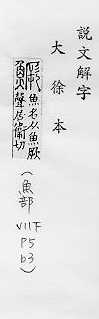 說文解字
大徐本
鱖 魚名从魚厥
聲居衞切
(魚部
VII下
P5
b3)